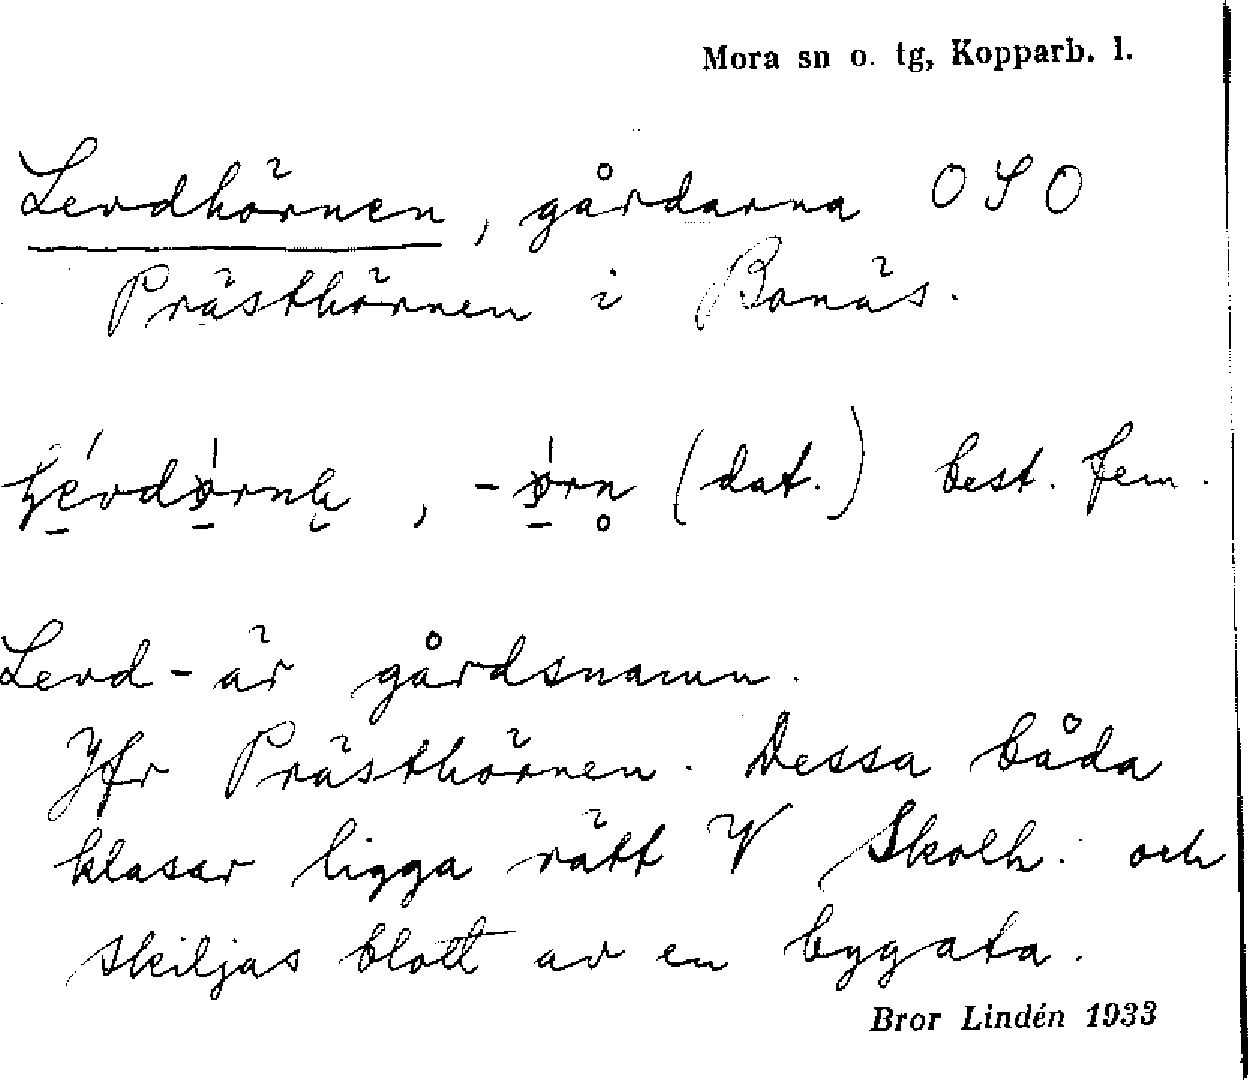 Mora sn o. tg, Kopparb. l.
Levdhörnen, gårdarna OSO
Prästhörnen i Bonäs.
(dat.) best. fem.
Levd- är gårdsnamn.
Jfr Prästhörnen. Dessa båda
klasar ligga rätt V Skolh. och
skiljas blott av en bygata.
Bror Lindén 1933